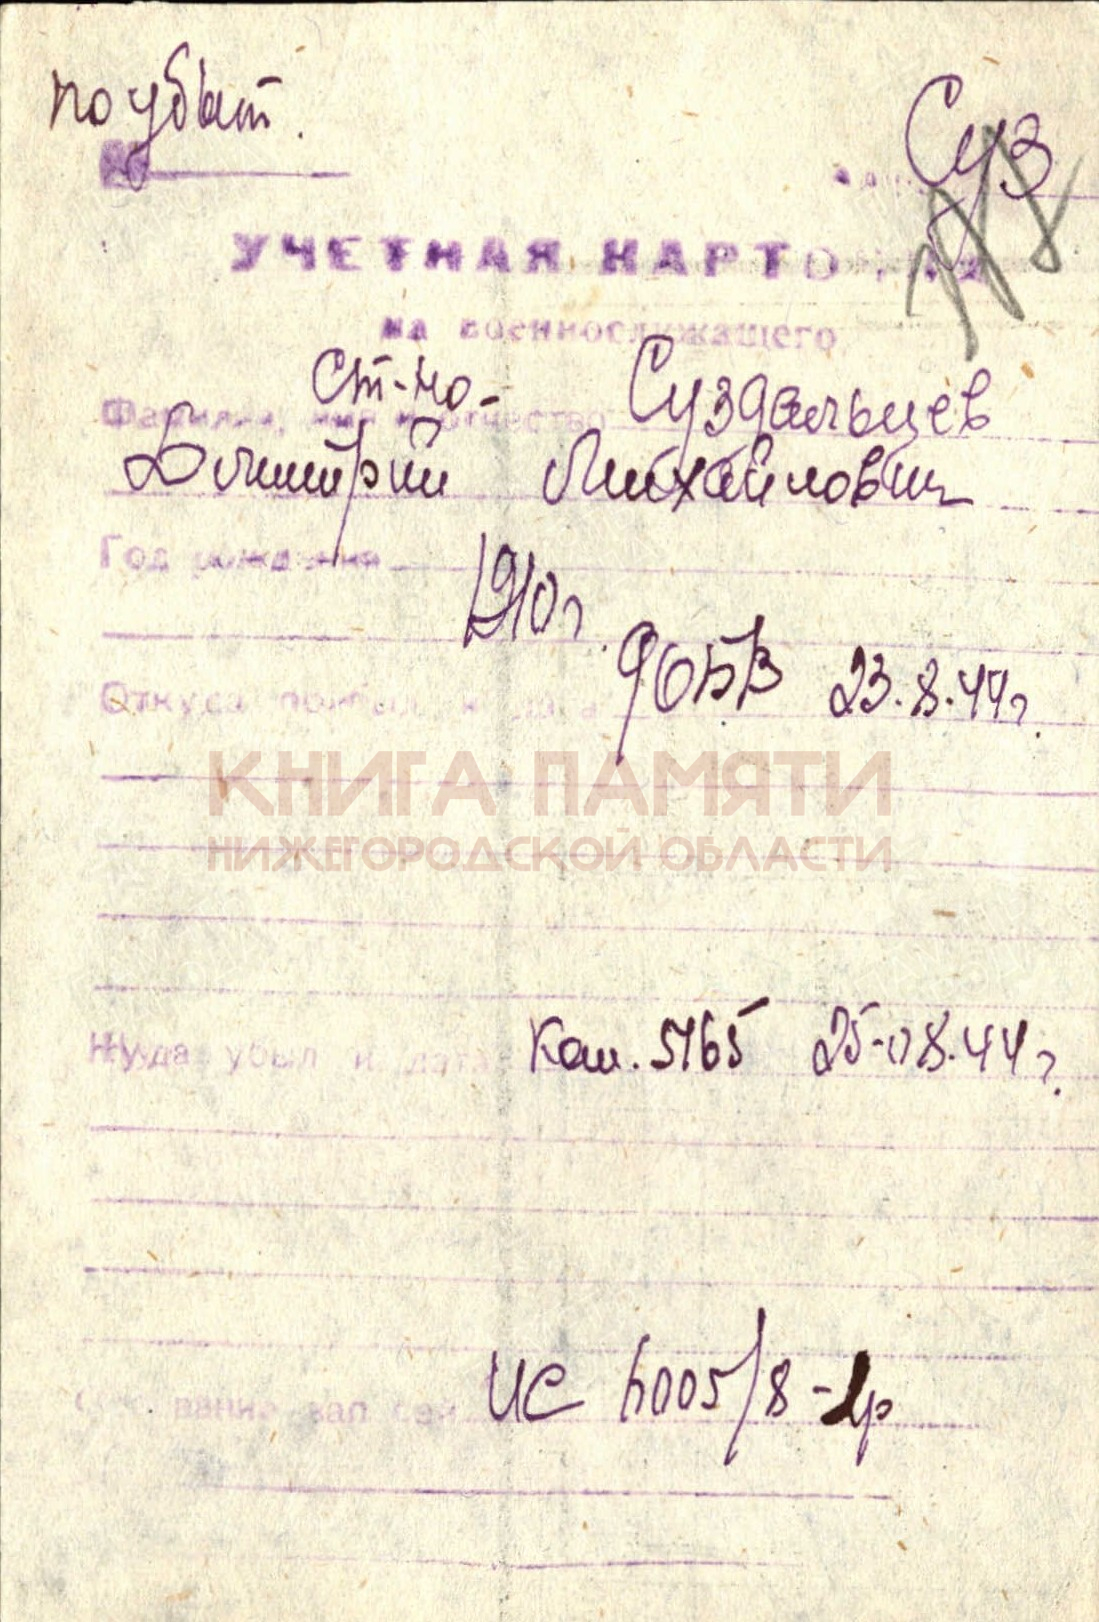 по убыт.
Суз
78
УЧЕТНАЯ КАРТО
на военнослужащего
Ст-на-
Фамилия, имя и отчество Суздальцев
Димитрий Михайлович
Год рождения
1910 г.
Откуда прибыл и дата ФОБВ 23.8.44 г.
КНИГА ПАМЯТИ
НИЖЕГОРОДСКОЙ ОБЛАСТИ
Куда убыл и дата Ком. 5165 25-08.44 г.
вание зап сей ИС 6005/8-